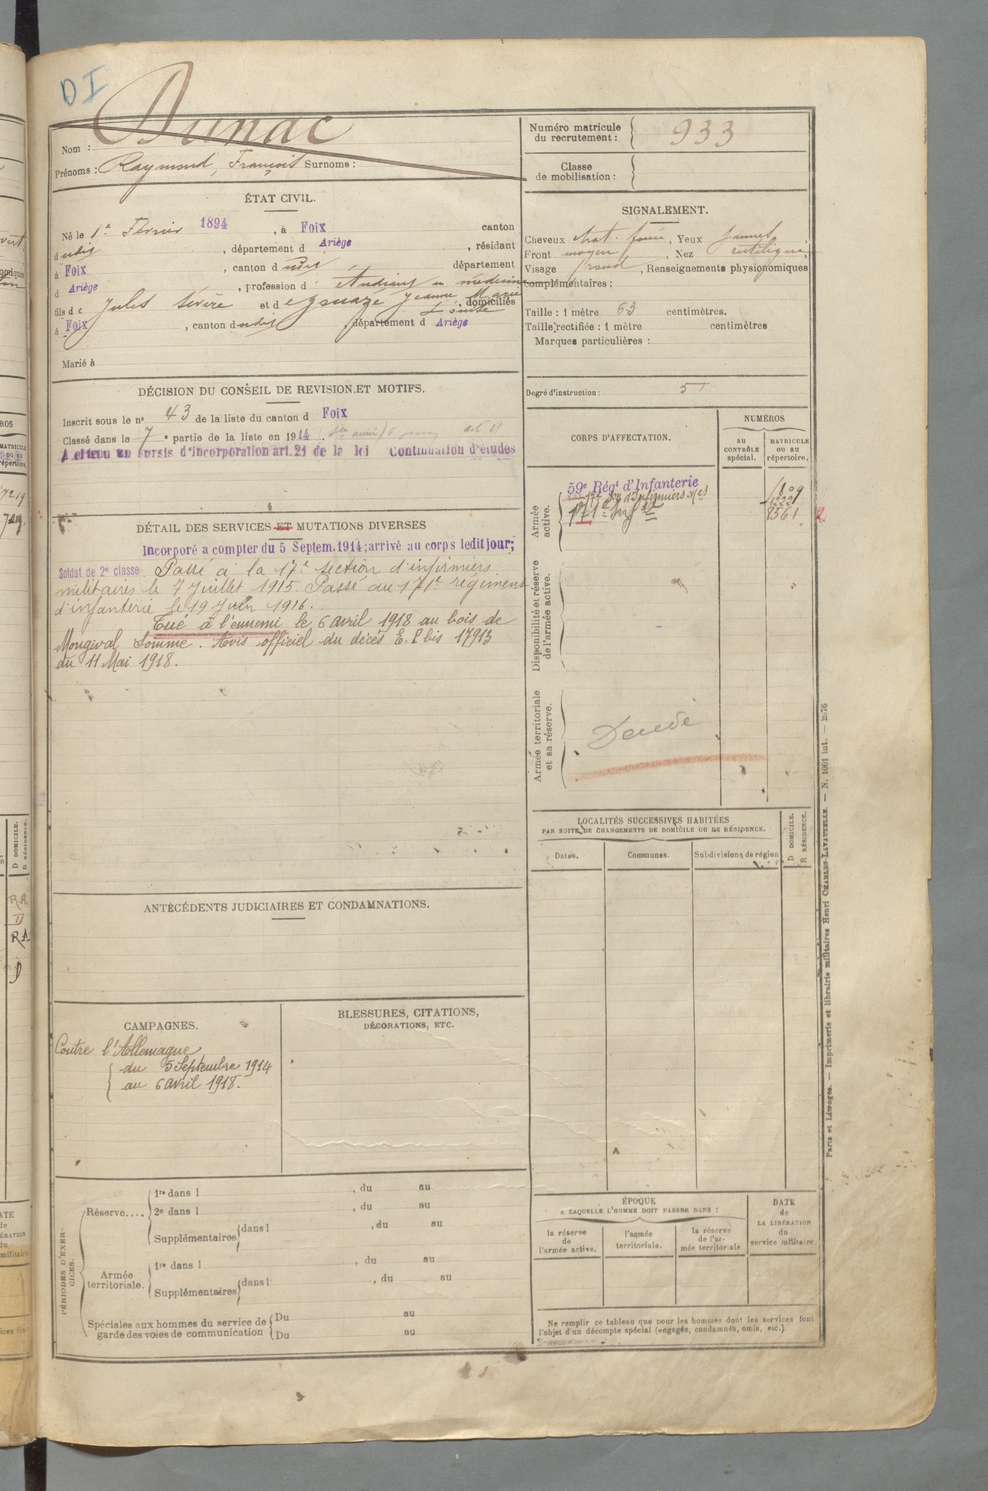 DI
Nom : Dunac
Prénoms : Raymond, François Surnome :
Numéro matricule
du recrutement : 933
Classe
de mobilisation :
ÉTAT CIVIL.
Né le 1er Février 1894, à Foix canton
dudit, département d Ariège, résidant
à Foix, canton dudit, département
d Ariège, profession d' étudiant en médecine
fils de Jules Sévère et de Jeanne Marie
Louise, domiciliés
à Foix, canton dudit, département d Ariège
Marié à
SIGNALEMENT.
Cheveux chat. foncé, Yeux jaunes,
Front moyen, Nez rectiligne,
Visage rond, Renseignements physionomiques
complémentaires :
Taille : 1 mètre 63 centimètres.
Taille rectifiée : 1 mètre centimètres
Marques particulières :
Degré d'instruction : 5
DÉCISION DU CONSEIL DE REVISION ET MOTIFS.
Inscrit sous le n° 43 de la liste du canton d Foix
Classé dans la 7e partie de la liste en 1914. art 21
A obtenu un sursis d'incorporation art. 21 de la loi Continuation d'études
DÉTAIL DES SERVICES ET MUTATIONS DIVERSES
Incorporé a compter du 5 Septem. 1914; arrivé au corps ledit jour;
Soldat de 2e classe Passé à la 17e section d'infirmiers
militaires le 7 Juillet 1915. Passé au 171e régiment
d'infanterie le 19 Juin 1916.
Tué à l'ennemi le 6 avril 1918 au bois de
Mongival Somme. Avis officiel du décès E. P. bis 17913
du 11 Mai 1918.
CORPS D'AFFECTATION.
NUMÉROS
AU
CONTRÔLE
spécial.
MATRICULE
OU AU
RÉPERTOIRE.
Armée
active.
59e Rég d'Infanterie
17e Son d'Infirmiers mres
171e Inf ie
8561
2
Disponibilité et réserve
de l'armée active.
Armée territoriale
et sa réserve.
Décédé
LOCALITÉS SUCCESSIVES HABITÉES
PAR SUITE DE CHANGEMENTS DE DOMICILE OU DE RÉSIDENCE.
Dates.
Communes.
Subdivisions de région
D DOMICILE.
R RÉSIDENCE.
ANTÉCÉDENTS JUDICIAIRES ET CONDAMNATIONS.
CAMPAGNES.
Contre l'Allemagne
du 5 Septembre 1914
au 6 avril 1918.
BLESSURES, CITATIONS,
DÉCORATIONS, ETC.
PÉRIODES D'EXERCICES.
Réserve....
1re dans l , du au
2e dans l , du au
Supplémentaires dans l , du au
Armée
territoriale.
1re dans l , du au
Supplémentaires dans l , du au
Spéciales aux hommes du service de
garde des voies de communication
Du au
Du au
ÉPOQUE
A LAQUELLE L'HOMME DOIT PASSER DANS :
la réserve
de
l'armée active.
l'armée
territoriale.
la réserve
de l'ar-
mée territoriale
DATE
de
LA LIBÉRATION
du
service militaire.
Ne remplir ce tableau que pour les hommes dont les services font
l'objet d'un décompte spécial (engagés, condamnés, omis, etc.)
Paris et Limoges. — Imprimerie et librairie militaires Henri CHARLES-LAVAUZELLE. — N. 1061 int. — 2876